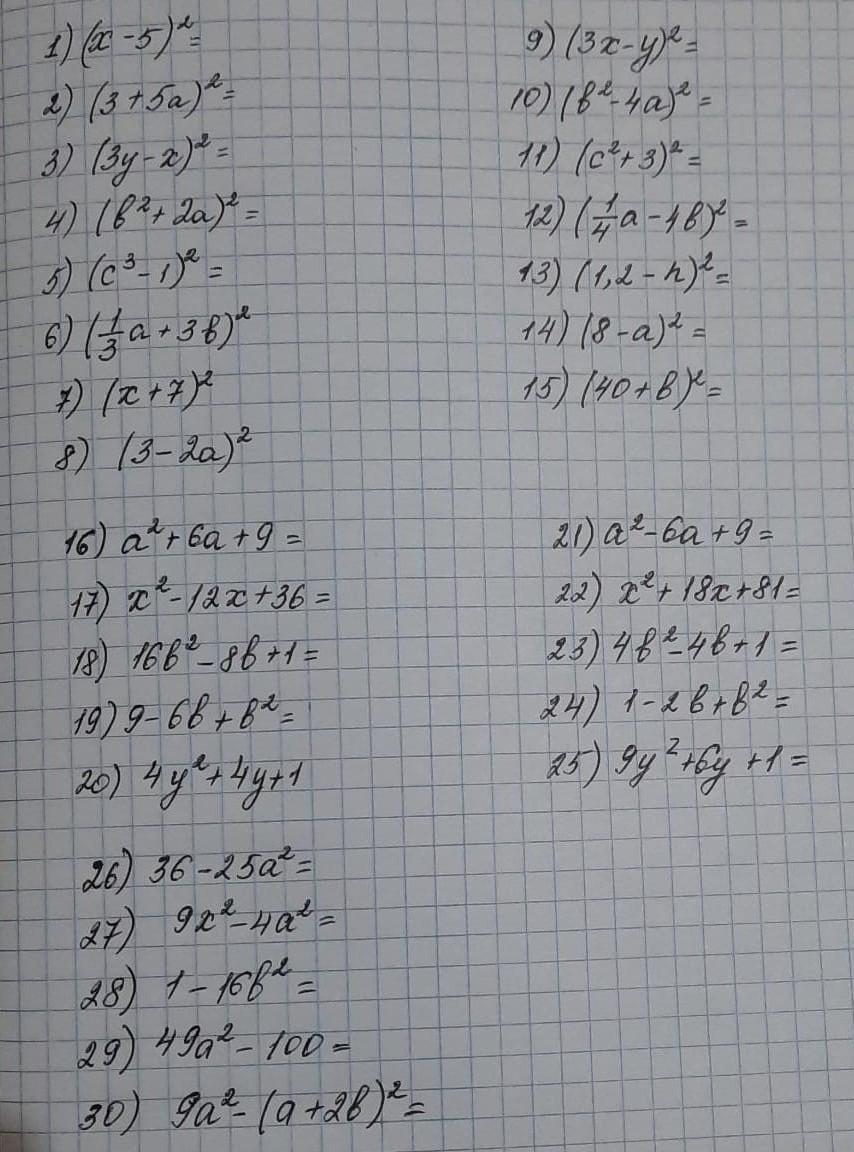 1) (x - 5)² =
2) (3 + 5a)² =
3) (3y - x)² =
4) (b² + 2a)² =
5) (c³ - 1)² =
6) (1/3 a + 3b)²
7) (x + 7)²
8) (3 - 2a)²
9) (3x - y)² =
10) (b² - 4a)² =
11) (c² + 3)² =
12) (1/4 a - 4b)² =
13) (1,2 - n)² =
14) (8 - a)² =
15) (40 + b)² =
16) a² + 6a + 9 =
17) x² - 12x + 36 =
18) 16b² - 8b + 1 =
19) 9 - 6b + b² =
20) 4y² + 4y + 1
21) a² - 6a + 9 =
22) x² + 18x + 81 =
23) 4b² - 4b + 1 =
24) 1 - 2b + b² =
25) 9y² + 6y + 1 =
26) 36 - 25a² =
27) 9x² - 4a² =
28) 1 - 16b² =
29) 49a² - 100 =
30) 9a² - (a + 2b)² =